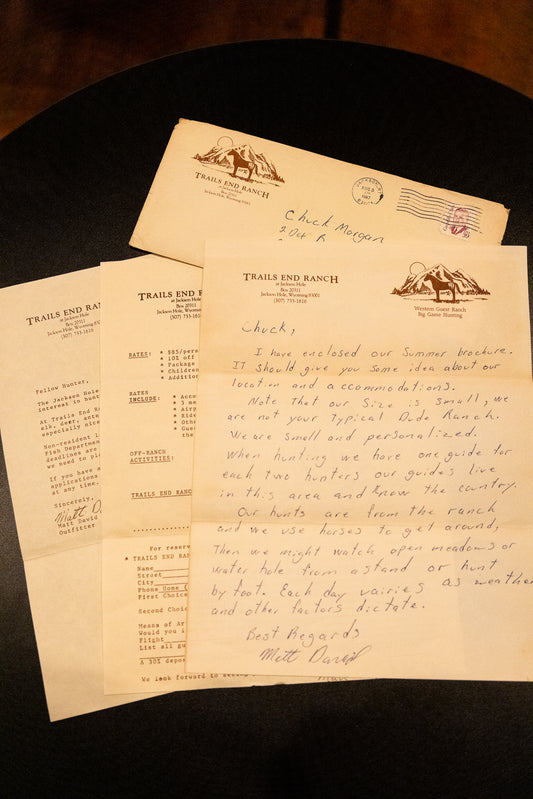 TRAILS END RANCH
at Jackson Hole
Box 20311
Jackson Hole, Wyoming 83001
Chuck Morgan
JACKSON, WY
1987
TRAILS END RANCH
at Jackson Hole
Box 20311
Jackson Hole, Wyoming 83001
(307) 733-1616
Western Guest Ranch
Big Game Hunting
Chuck,
I have enclosed our Summer brochure.
IT should give you some idea about our
location and accommodations.
Note that our Size is small, we
are not your Typical Dude Ranch.
We are small and personalized.
When hunting we have one guide for
each two hunters our guides live
in this area and know the country.
Our hunts are from the ranch
and we use horses to get around,
Then we might watch open meadows or
water hole from a stand or hunt
by foot. Each day vairies as weather
and other factors dictate.
Best Regards
Matt David
TRAILS END RAN
at Jackson Hole
Box 20311
Jackson Hole, Wyoming
(307) 733-1616
RATES: * $85/pers
* 10% off
* Package
* Children
* Addition
RATES
INCLUDE: * Acc
* 3 me
* Airp
* Ride
* Othe
* Gues
the
OFF-RANCH
ACTIVITIES:
TRAILS END RANC
For reserv
* TRAILS END RAN
Name
Street
City
Phone Home (
First Choice
Second Choic
Means of Ar
Would you i
Flight
List all gu
A 30% depos
We look forward to
TRAILS END RA
at Jackson Hole
Box 20311
Jackson Hole, Wyoming
(307) 733-1616
Fellow Hunter,
The Jackson Hole
interest to hunt
At Trails End Ra
elk, deer, ante
especially nice
Non-resident l
Fish Department
deadlines are
we need to pl
If you have a
applications
at any time.
Sincerely,
Matt D
Matt David
Outfitter